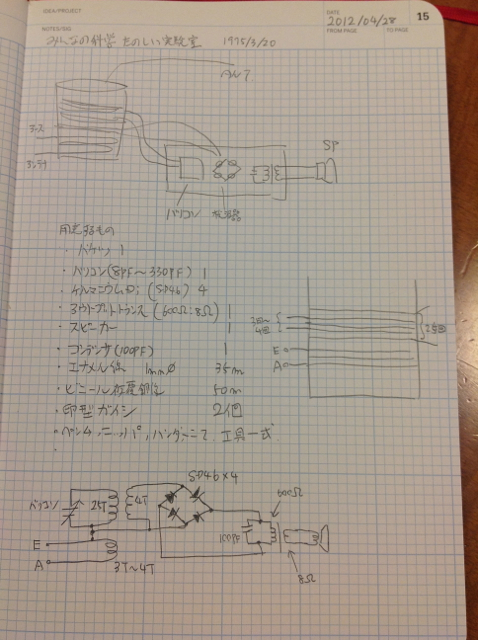 IDEA/PROJECT
NOTES/NO.
DATE
2012/04/28
FROM PAGE
TO PAGE
15
みんなの科学 たのしい実験室 1975/3/20
アース
アンテナ
バリコン
SP
用意するもの
・バケツ 1
・バリコン(8PF~330PF) 1
・ゲルマニウムD: (SD46) 4
・アウトプットトランス (600Ω:8Ω) 1
・スピーカー 1
・コンデンサ(100PF) 1
・エナメル線 1mmΦ 35m
・ビニール被覆銅 50m
・卵型ガイシ 2個
・ペンチ, ニッパ, ハンダ 工具一式
・
4回
25回
E
A
SD46×4
バリコン
25T
4T
E
A
3T~4T
100PF
600Ω
8Ω